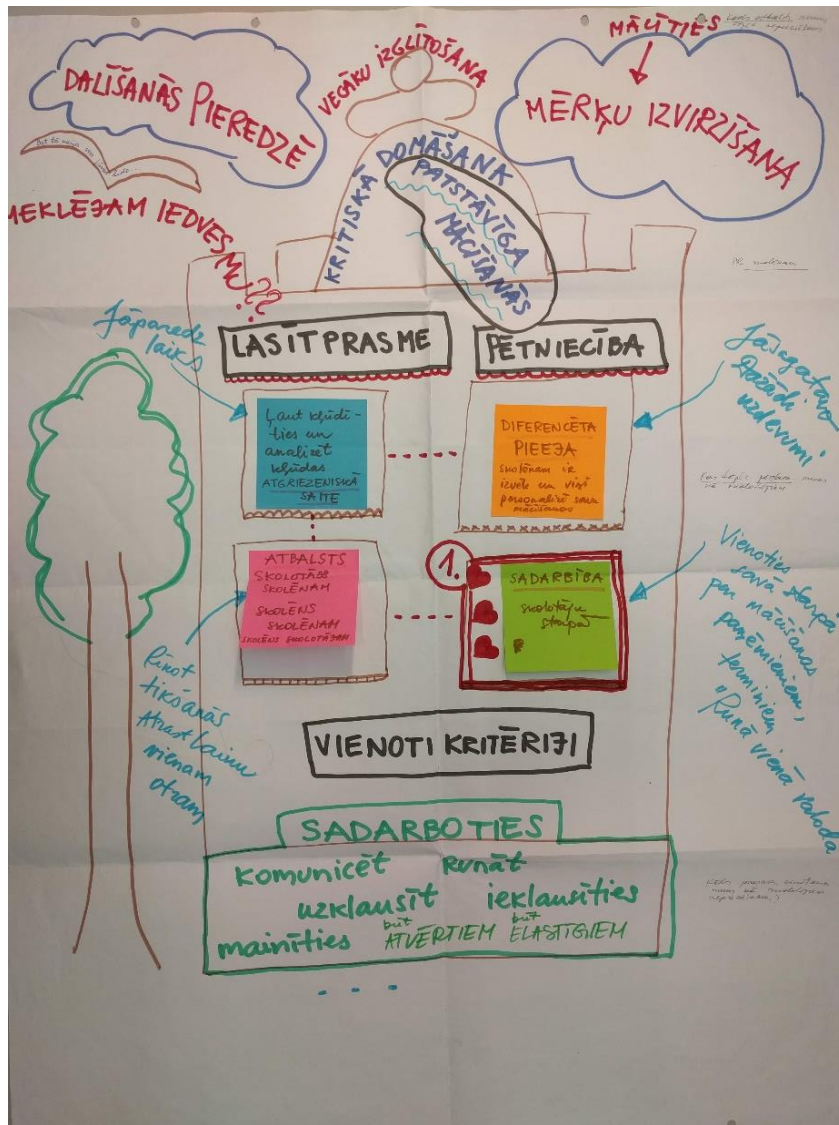 MĀCĪTIES
MĒRĶU IZVIRZĪŠANA
VECĀKU IZGLĪTOŠANA
DALĪŠANĀS PIEREDZĒ
MEKLĒJAM IEDVESMU??
KRITISKĀ DOMĀŠANA
PATSTĀVĪGA
MĀCĪŠANĀS
LASĪTPRASME
PĒTNIECĪBA
Jāparedz
laiks
Ļaut kļūdī-
ties un
analizēt
kļūdas
ATGRIEZENISKĀ
SAITE
DIFERENCĒTA
PIEEJA
skolēnam ir
izvēle un viņi
personalizē savu
mācīšanos
Jāsagatavo
dažādi
uzdevumi
ATBALSTS
SKOLOTĀJS
SKOLĒNAM
SKOLĒNS
SKOLĒNAM
SKOLĒNS SKOLOTĀJAM
1.
SADARBĪBA
skolotāju
starpā
Vienoties
savā starpā
par mācīšanas
paņēmieniem,
terminiem
"Runā vienā valodā
Rīkot
tikšanās
Atrast laiku
vienam
otram
VIENOTI KRITĒRIJI
SADARBOTIES
Komunicēt Runāt
uzklausīt ieklausīties
mainīties būt ATVĒRTIEM būt ELASTĪGIEM